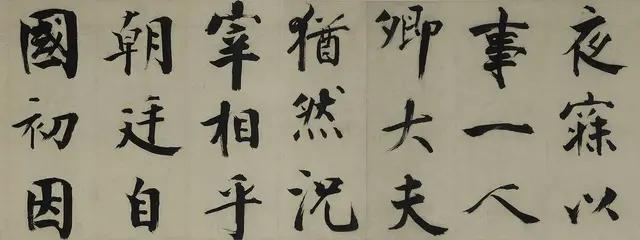 夜寐以
事一人
卿大夫
猶然況
宰相乎
朝廷自
國初因